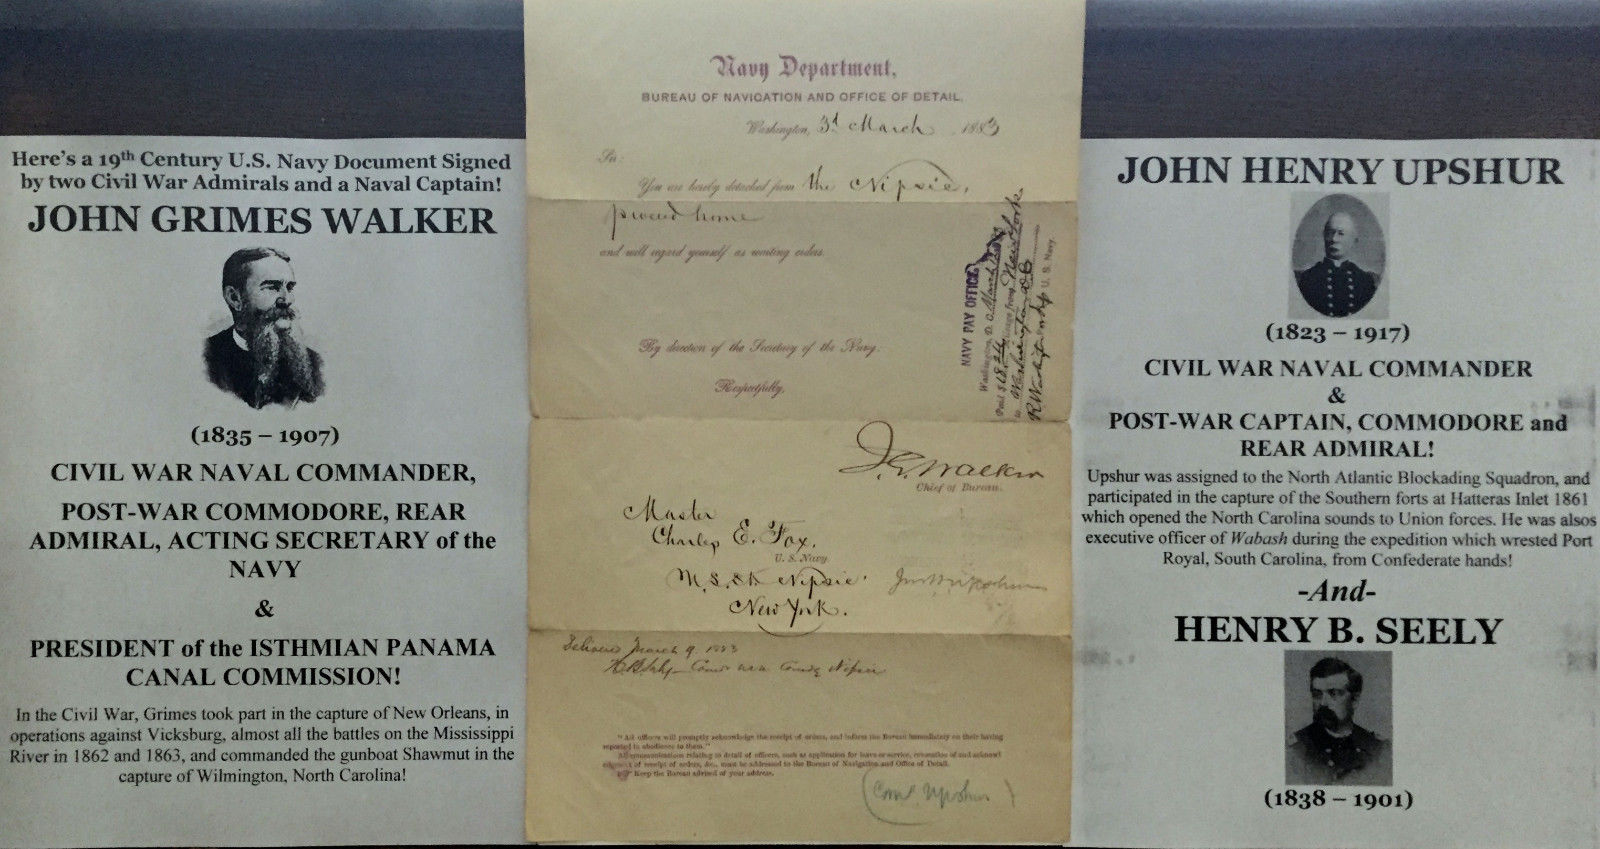 Here's a 19th Century U.S. Navy Document Signed
by two Civil War Admirals and a Naval Captain!
JOHN GRIMES WALKER
(1835 – 1907)
CIVIL WAR NAVAL COMMANDER,
POST-WAR COMMODORE, REAR
ADMIRAL, ACTING SECRETARY of the
NAVY
&
PRESIDENT of the ISTHMIAN PANAMA
CANAL COMMISSION!
In the Civil War, Grimes took part in the capture of New Orleans, in
operations against Vicksburg, almost all the battles on the Mississippi
River in 1862 and 1863, and commanded the gunboat Shawmut in the
capture of Wilmington, North Carolina!
Navy Department,
BUREAU OF NAVIGATION AND OFFICE OF DETAIL,
Washington, 3d March, 1883
Sir:
You are hereby detached from the Nipsic,
proceed home
and will regard yourself as waiting orders.
By direction of the Secretary of the Navy.
Respectfully,
J. G. Walker
Chief of Bureau.
Master
Charles E. Fox,
U.S. Navy
Nipsic
New York.
March 9, 1883
H.B. Seely Nipsic
"All officers will promptly acknowledge the receipt of orders, and inform the Bureau immediately on their having
reported in obedience to them."
All communications relating to detail of officers, such as application for leave or service, revocation of and acknowl
edgment of receipt of orders, &c., must be addressed to the Bureau of Navigation and Office of Detail.
Keep the Bureau advised of your address.
(Com. Upshur)
NAVY PAY OFFICE,
Washington, D. C. March
Paid $18.24 mileage from New York
to Washington D.C.
U. S. Navy.
JOHN HENRY UPSHUR
(1823 – 1917)
CIVIL WAR NAVAL COMMANDER
&
POST-WAR CAPTAIN, COMMODORE and
REAR ADMIRAL!
Upshur was assigned to the North Atlantic Blockading Squadron, and
participated in the capture of the Southern forts at Hatteras Inlet 1861
which opened the North Carolina sounds to Union forces. He was alsos
executive officer of Wabash during the expedition which wrested Port
Royal, South Carolina, from Confederate hands!
-And-
HENRY B. SEELY
(1838 – 1901)